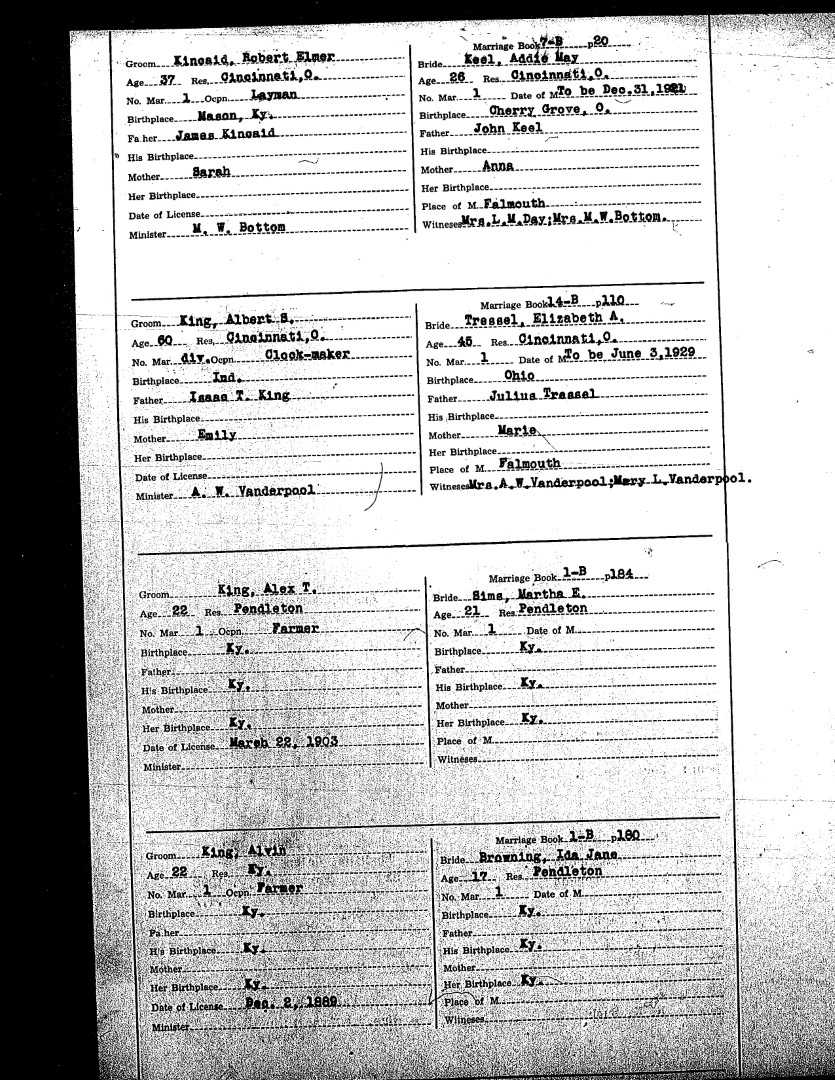 Marriage Book 7-B p20
Groom Kincaid, Robert Elmer
Age 37 Res. Cincinnati,O.
No. Mar. 1 Ocpn. Layman
Birthplace Mason, Ky.
Father James Kincaid
His Birthplace
Mother Sarah
Her Birthplace
Date of License
Minister M. W. Bottom
Bride Keel, Addie May
Age 26 Res. Cincinnati,O.
No. Mar. 1 Date of M. To be Dec.31,1921
Birthplace Cherry Grove, O.
Father John Keel
His Birthplace
Mother Anna
Her Birthplace
Place of M. Falmouth
Witnesses Mrs.L.M.Day;Mrs.M.W.Bottom.
Marriage Book 14-B p110
Groom King, Albert S.
Age 60 Res. Cincinnati,O.
No. Mar. div. Ocpn. Clock-maker
Birthplace Ind.
Father Isaac T. King
His Birthplace
Mother Emily
Her Birthplace
Date of License
Minister A. W. Vanderpool
Bride Tressel, Elizabeth A.
Age 45 Res. Cincinnati,O.
No. Mar. 1 Date of M. To be June 3,1929
Birthplace Ohio
Father Julius Tressel
His Birthplace
Mother Marie
Her Birthplace
Place of M. Falmouth
Witnesses Mrs.A.W.Vanderpool;Mary L.Vanderpool.
Marriage Book 1-B p184
Groom King, Alex T.
Age 22 Res. Pendleton
No. Mar. 1 Ocpn. Farmer
Birthplace Ky.
Father
His Birthplace Ky.
Mother
Her Birthplace Ky.
Date of License March 22, 1903
Minister
Bride Sims, Martha E.
Age 21 Res. Pendleton
No. Mar. 1 Date of M.
Birthplace Ky.
Father
His Birthplace Ky.
Mother
Her Birthplace Ky.
Place of M.
Witnesses
Marriage Book 1-B p180
Groom King, Alvin
Age 22 Res. Ky.
No. Mar. 1 Ocpn. Farmer
Birthplace Ky.
Father
His Birthplace Ky.
Mother
Her Birthplace Ky.
Date of License Dec. 2, 1889
Minister
Bride Browning, Ida Jane
Age 17 Res. Pendleton
No. Mar. 1 Date of M.
Birthplace Ky.
Father
His Birthplace Ky.
Mother
Her Birthplace Ky.
Place of M.
Witnesses